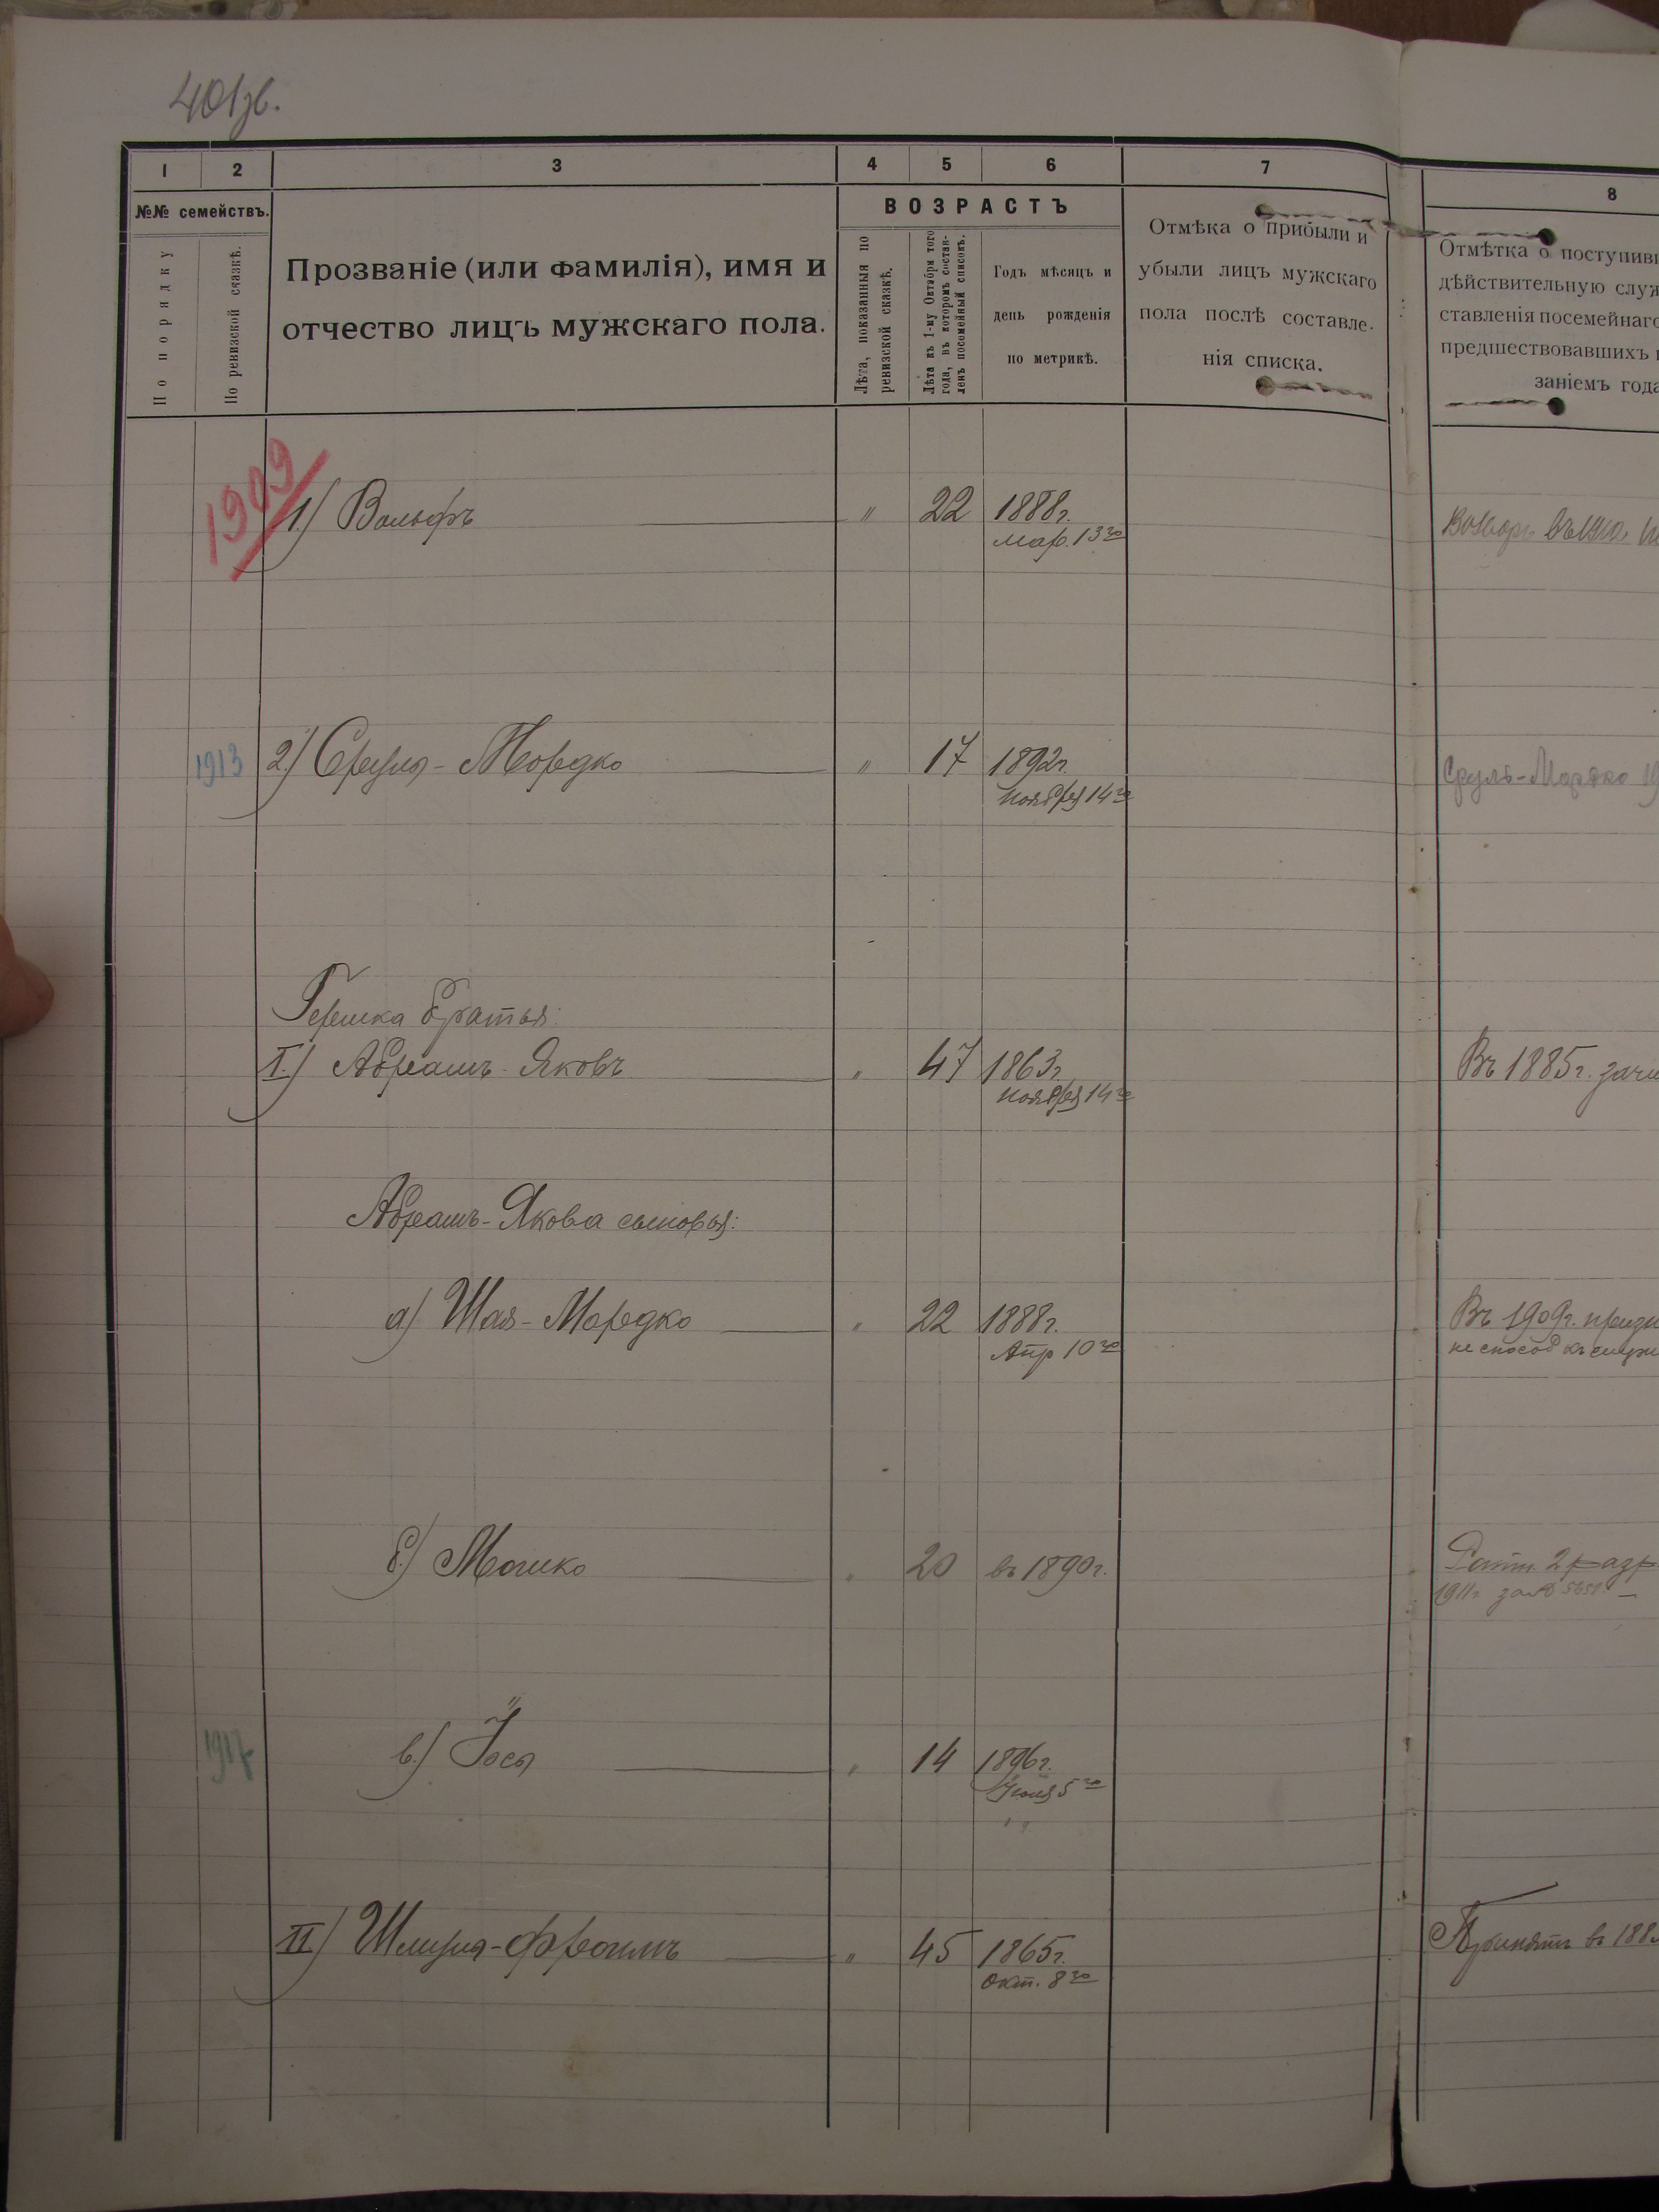 401зв.
1 2 3 4 5 6 7 8
№№ семействъ.
По порядку
По ревизской сказкѣ.
Прозваніе (или фамилія), имя и
отчество лицъ мужскаго пола.
ВОЗРАСТЪ
Лѣта, показанныя по
ревизской сказкѣ.
Лѣта къ 1-му Октября того
года, въ которомъ состав-
ленъ посемейный списокъ.
Годъ мѣсяцъ и
день рожденія
по метрикѣ.
Отмѣка о прибыли и
убыли лицъ мужскаго
пола послѣ составле-
нія списка.
Отмѣтка о поступивш
дѣйствительную служ
ставленія посемейнаго
предшествовавшихъ
заніемъ года
1909
1) Вольфъ " 22 1888г.
мар. 13го
1913 2) Сруль-Мордко " 17 1892г. Сруль-Мордко 19
ноября 14го
Гершка братья:
I.) Абрамъ-Яковъ " 47 1863г. Въ 1885г. зачи
ноября 14го
Абрамъ-Якова сыновья:
а) Шая-Мордко " 22 1888г. Въ 1909г. призн
Апр 10го не способ къ служ
б.) Мошко " 20 въ 1890г. Ратн. 2 разр
1911г за №
1917 в.) Іось " 14 1896г.
Іюля 5го
II) Шмуль-Фроимъ " 45 1865г. Принятъ въ 188
Окт. 8го